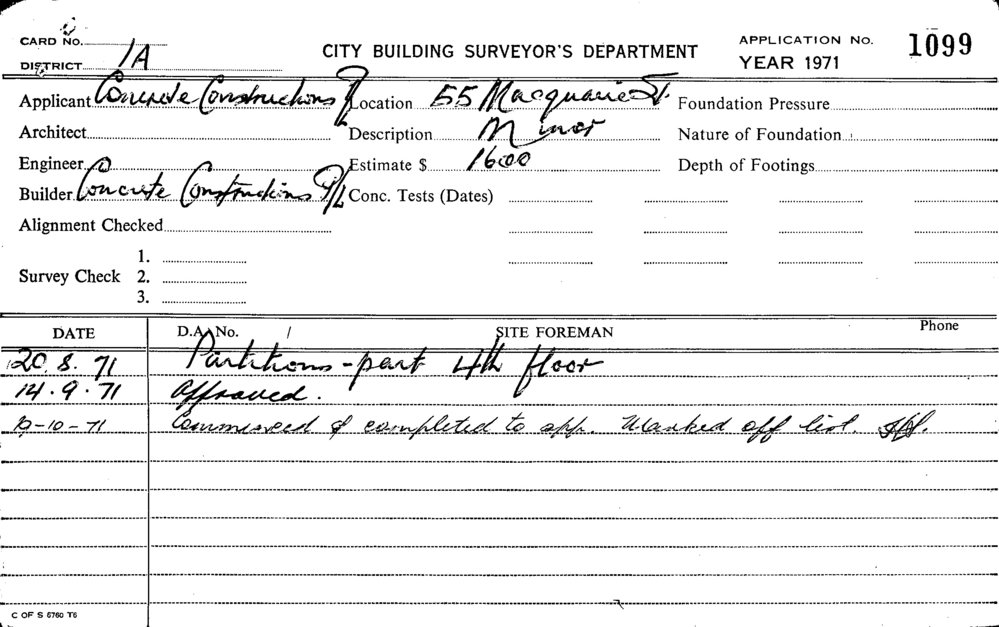 CARD No.
DISTRICT 1A
CITY BUILDING SURVEYOR'S DEPARTMENT
APPLICATION No. 1099
YEAR 1971
Applicant Concrete Constructions P/L Location 55 Macquarie St. Foundation Pressure
Architect Description Minor Nature of Foundation
Engineer Estimate $ 1600 Depth of Footings
Builder Concrete Constructions P/L Conc. Tests (Dates)
Alignment Checked
1.
Survey Check 2.
3.
DATE D.A. No. / SITE FOREMAN Phone
20.8.71 Partitions - part 4th floor
14.9.71 Approved.
-10-71 Commenced & completed to app. Marked off list.
C OF S 5760 T6